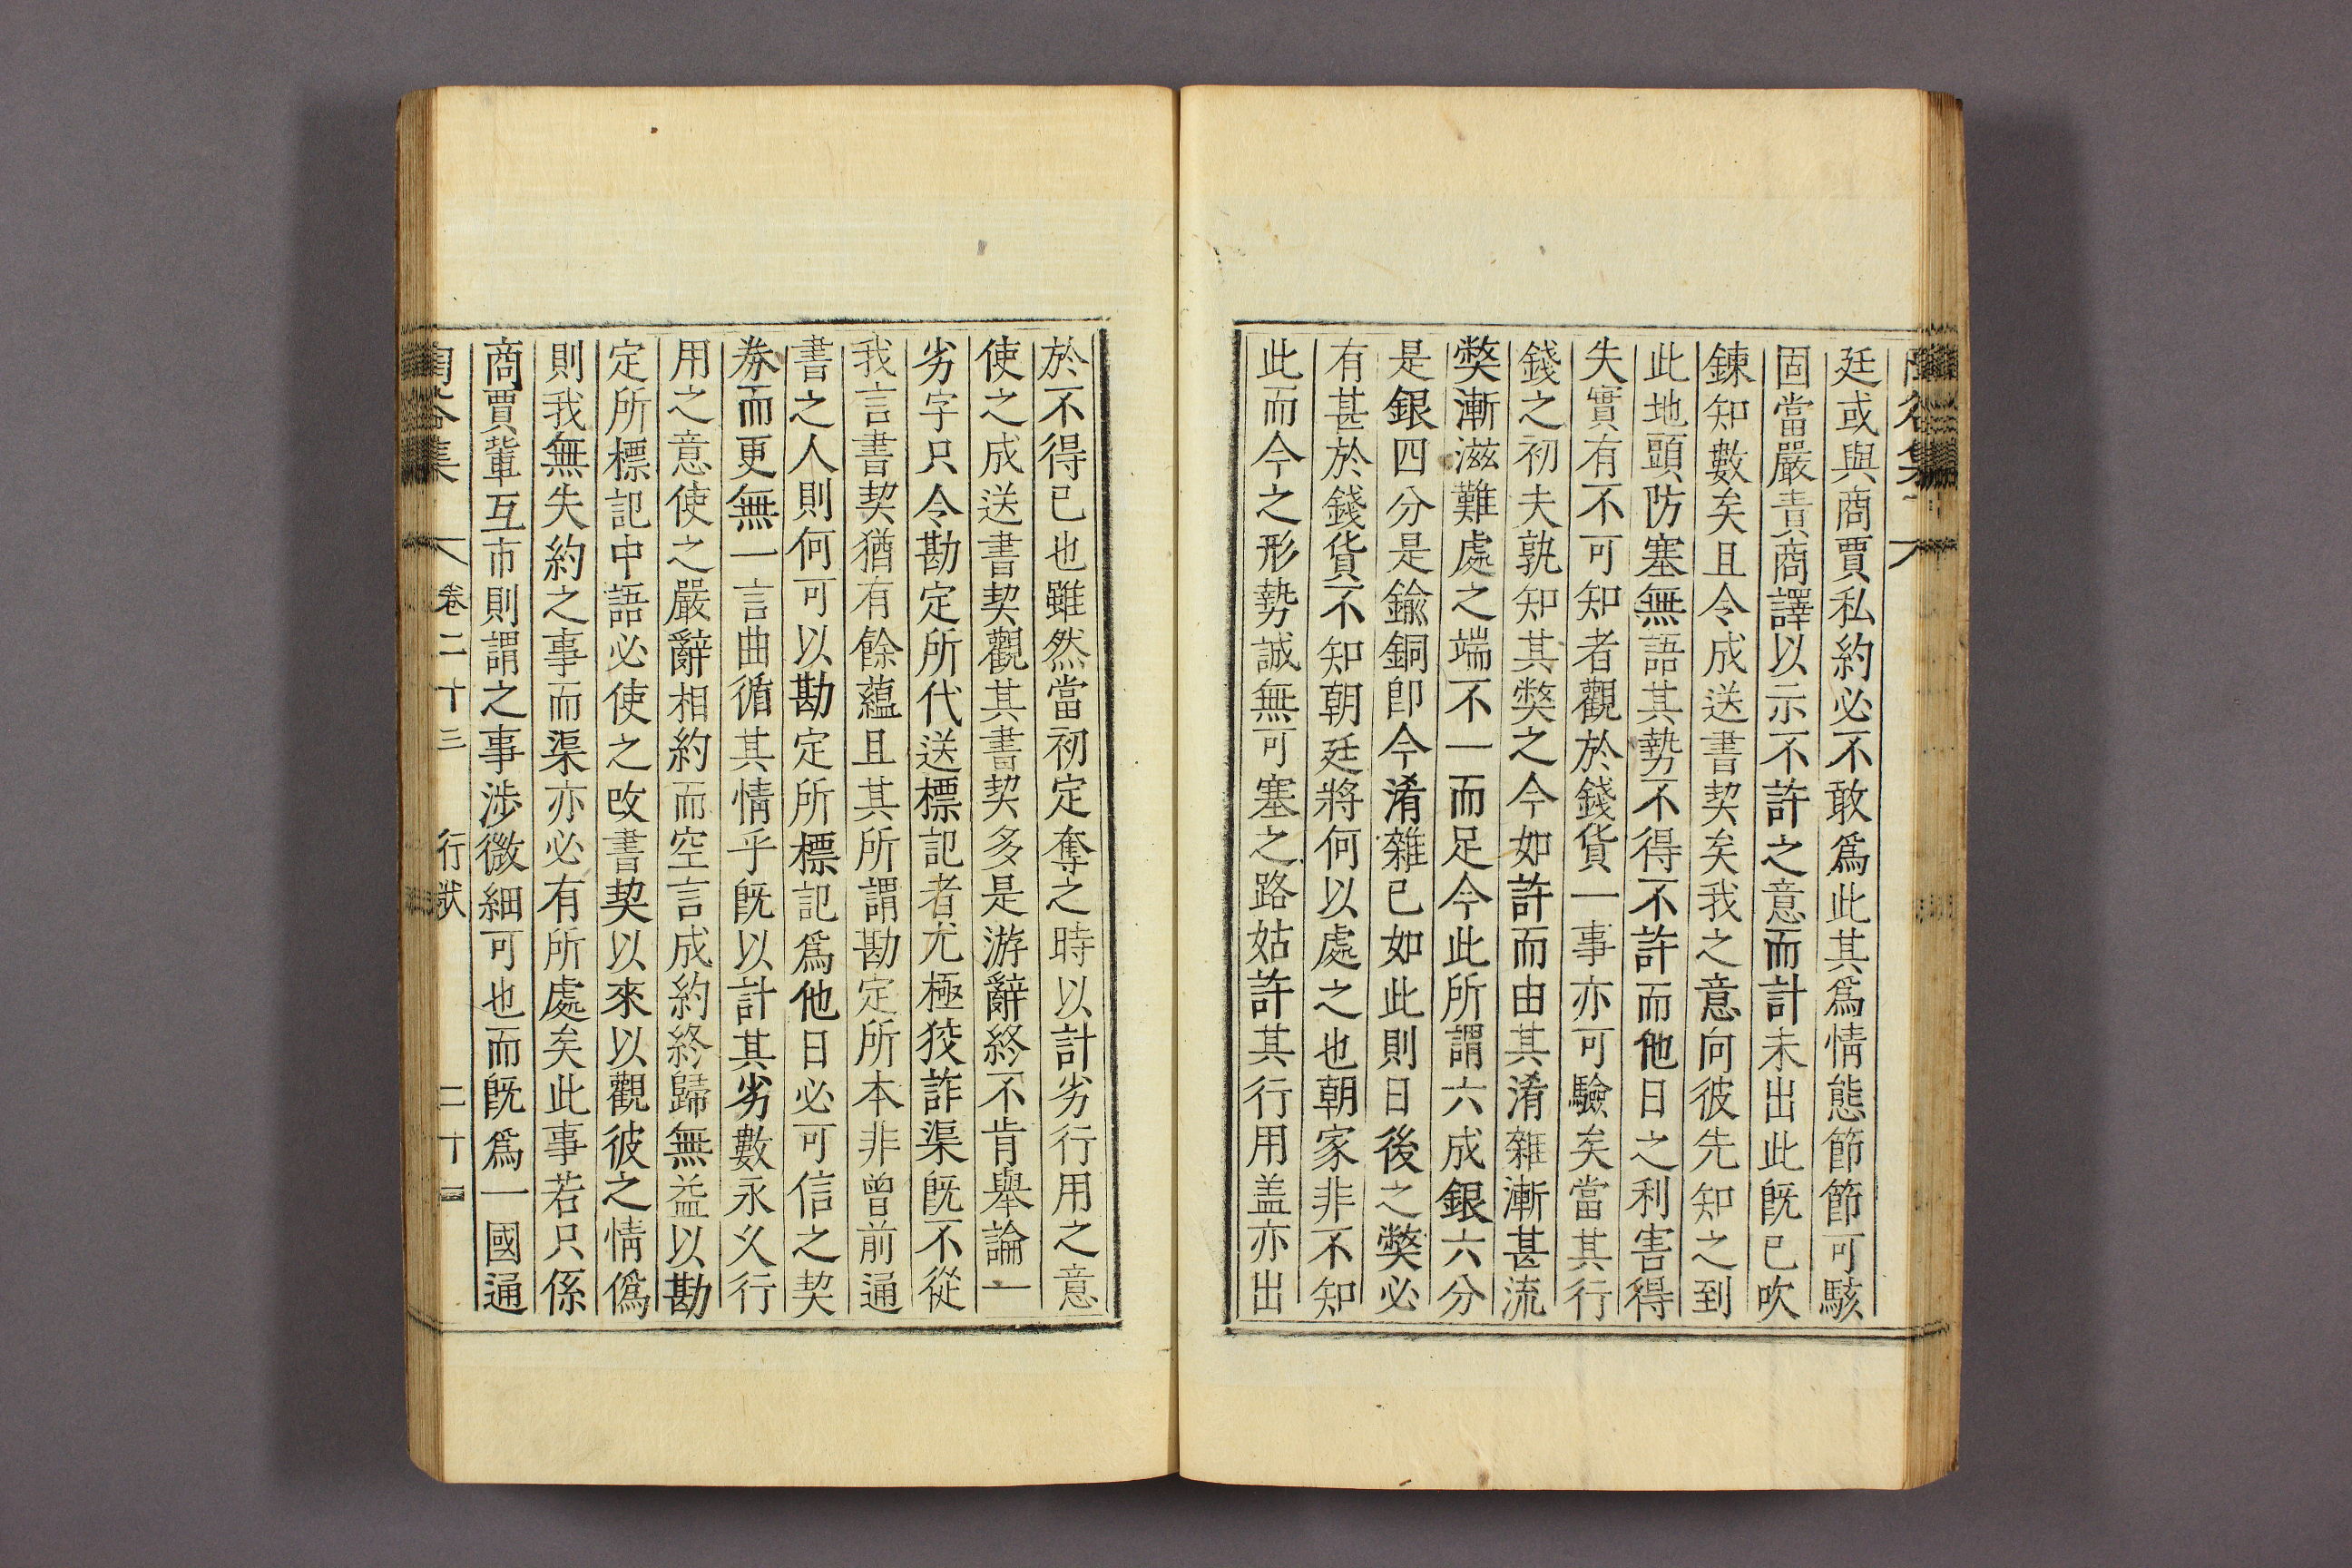 廷或與商賈私約必不敢爲此其爲情態節節可駭
固當嚴責商譯以示不許之意而計未出此旣已吹
鍊知數矣且令成送書契矣我之意向彼先知之到
此地頭防塞無語其勢不得不許而他日之利害得
失實有不可知者觀於錢貨一事亦可驗矣當其行
錢之初夫孰知其獘之今如許而由其淆雜漸甚流
獘漸滋難處之端不一而足今此所謂六成銀六分
是銀四分是鍮銅卽今淆雜已如此則日後之獘必
有甚於錢貨不知朝廷將何以處之也朝家非不知
此而今之形勢誠無可塞之路姑許其行用盖亦出
於不得已也雖然當初定奪之時以計劣行用之意
使之成送書契觀其書契多是游辭終不肯擧論一
劣字只令勘定所代送標記者尤極狡詐渠旣不從
我言書契猶有餘蘊且其所謂勘定所本非曾前通
書之人則何可以勘定所標記爲他日必可信之契
劵而更無一言曲循其情乎旣以計其劣數永久行
用之意使之嚴辭相約而空言成約終歸無益以勘
定所標記中語必使之改書契以來以觀彼之情僞
則我無失約之事而渠亦必有所處矣此事若只係
商賈輩互市則謂之事涉微細可也而旣爲一國通
陶谷集 卷二十三 行狀 二十二